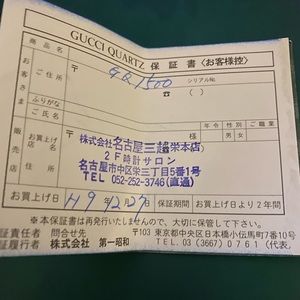 GUCCI QUARTZ 保証書〈お客様控〉
商品名 GQ1500 シリアル№
お客さま ご住所 ☎ ( )
ふりがな 年令 性別 ご職業
ご氏名 様 男・女
販売店 お買上げ店
株式会社名古屋三越栄本店
2F時計サロン
名古屋市中区栄三丁目5番1号
TEL 052-252-3746(直通)
お買上げ日 H9.12.27 保証期間 お買上げ日より2年間
※本保証書は再発行いたしませんので、大切に保管して下さい。
証責任者 問合せ先 〒103 東京都中央区日本橋小伝馬町7番10号
証履行者 株式会社 第一昭和 TEL 03(3667)0761(代表)